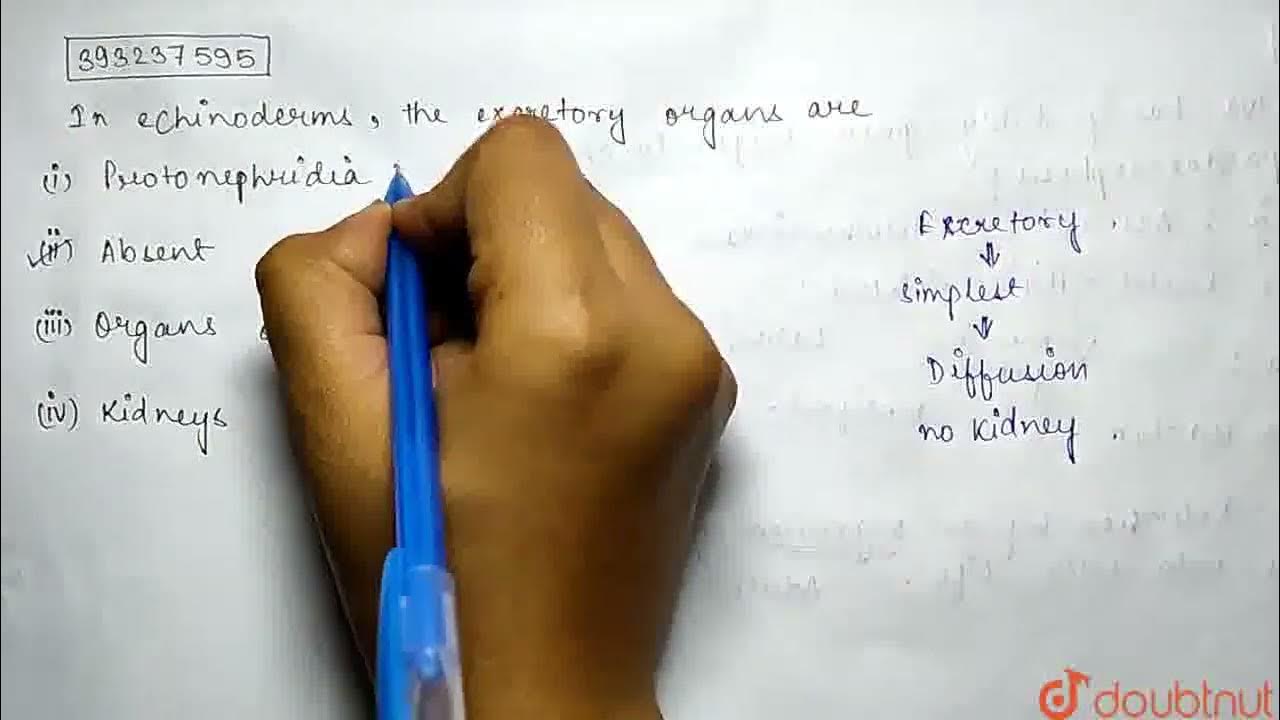 393237595
In echinoderms, the excretory organs are
(i) Protonephridia
(ii) Absent
(iii) Organs
(iv) Kidneys
Excretory.
⇓
simplest
⇓
Diffusion
no kidney.
doubtnut